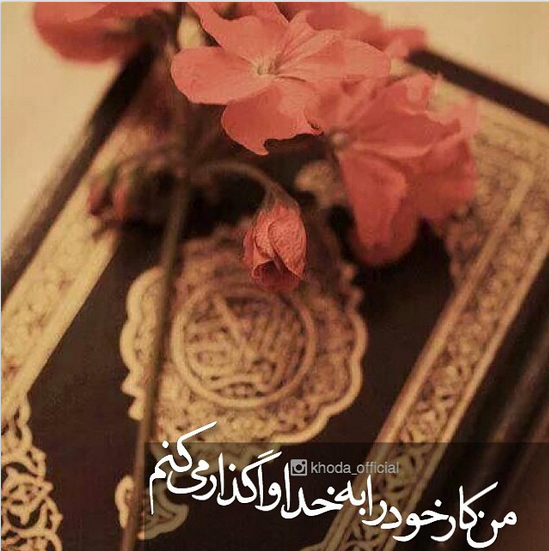 khoda_official
من کار خود را به خدا واگذار می‌کنم